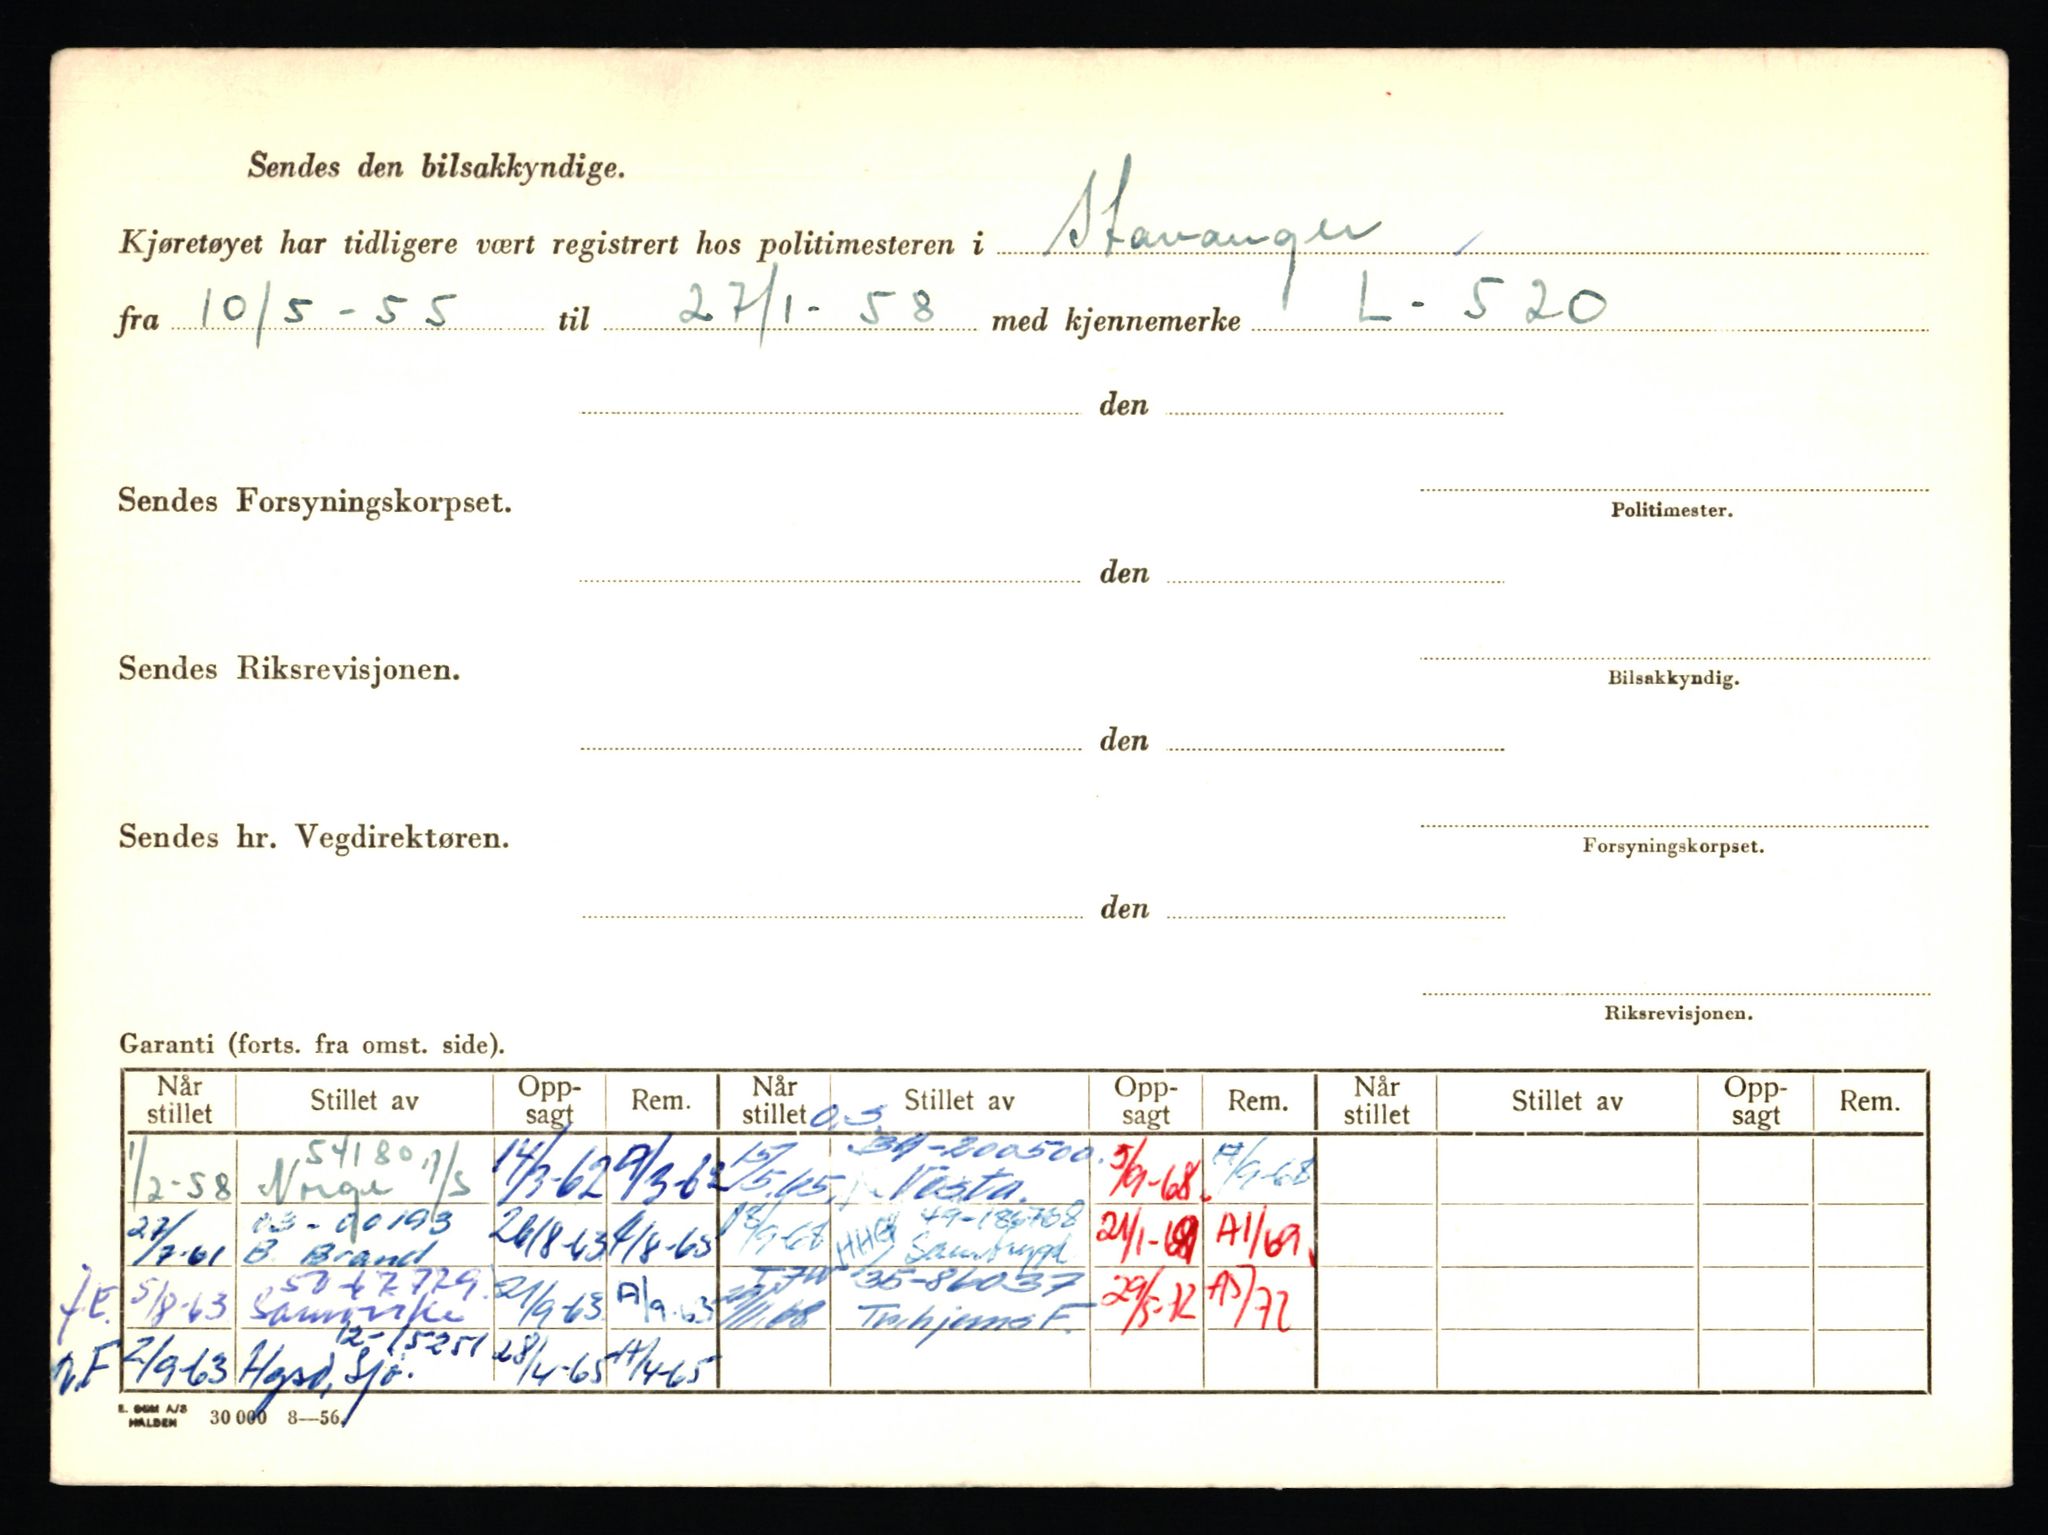 Sendes den bilsakkyndige.
Kjøretøyet har tidligere vært registrert hos politimesteren i Stavanger
fra 10/5-55 til 27/1-58 med kjennemerke L-520
den
Sendes Forsyningskorpset.
Politimester.
den
Sendes Riksrevisjonen.
Bilsakkyndig.
den
Sendes hr. Vegdirektøren.
Forsyningskorpset.
den
Riksrevisjonen.
Garanti (forts. fra omst. side).
Når stillet Stillet av Opp-sagt Rem. Når stillet Stillet av Opp-sagt Rem. Når stillet Stillet av Opp-sagt Rem.
1/2-58 54180 Norge 14/3-62 A/3-62 15/5.65 39-200500 Vesta. 5/9-68. A/9-68
27/7-61 03-00193 B. Brand 26/8-63 A/8-63 18/9-68 49-186768 Samtrygd 21/1-69 A1/69
5/8-63 50-67779 Samvirke 21/9-63 A/9-63 35-86037 29/5-72 A5/72
2/9-63 12-15251 Hgsd, Sjø. 28/4-65 A/4-65
E. SEM A/S
HALDEN 30 000 8—56.